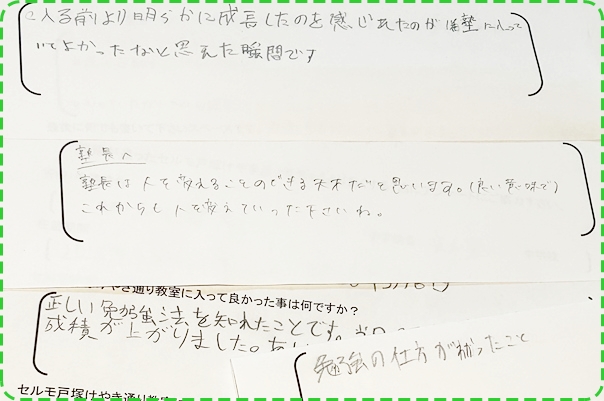 に入る前より明らかに成長したのを感じれたのが、塾に入って
いてよかったなと思えた瞬間です
塾長へ
塾長は人を変えることのできる天才だと思います。(良い意味で)
これからも人を変えていって下さいね。
やき通り教室に入って良かった事は何ですか?
正しい勉強法を知れたことです。
成績が上がりました。
勉強の仕方が補ったこと
セルモ戸塚けやき通り教室